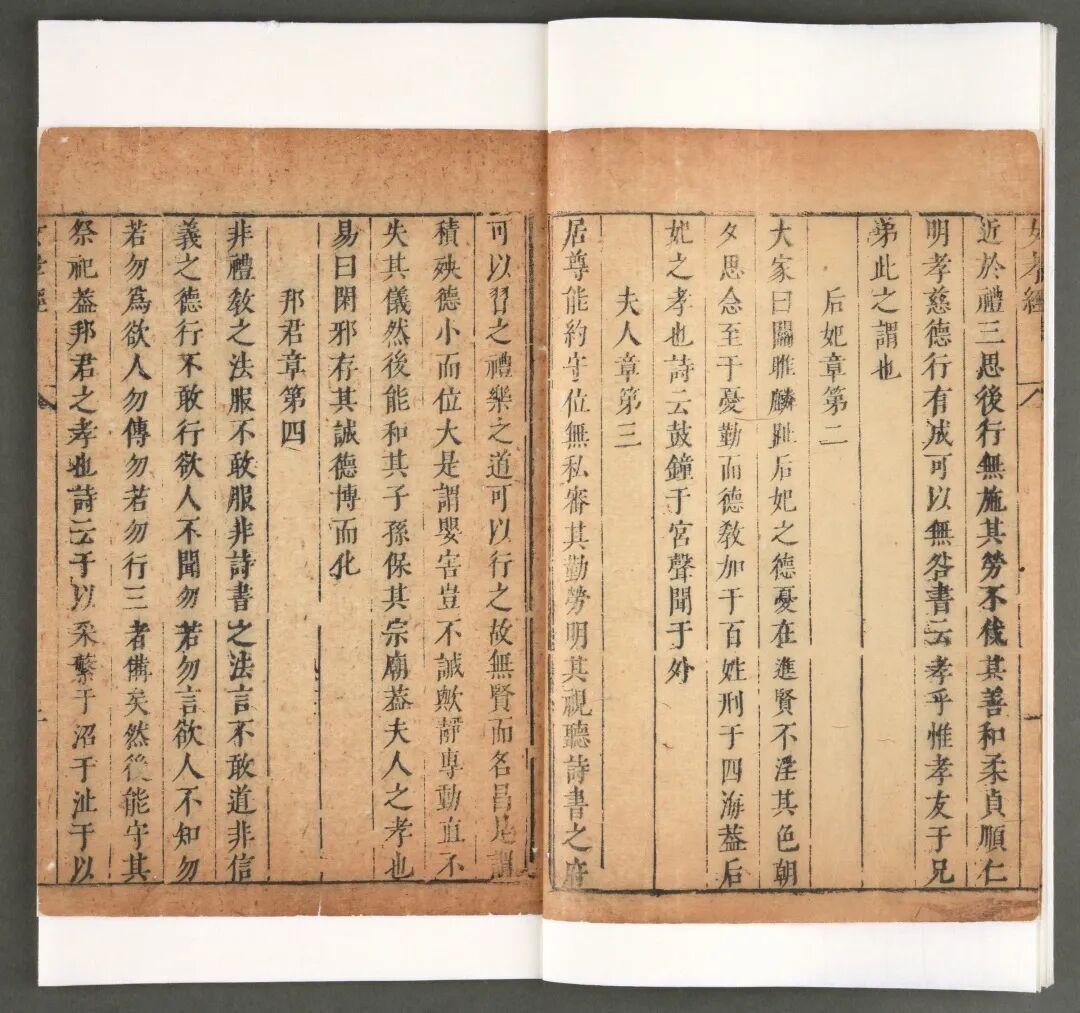 女孝經
近於禮三思後行無施其勞不伐其善和柔貞順仁
明孝慈德行有成可以無咎書云孝乎惟孝友于兄
弟此之謂也
后妃章第二
大家曰關雎麟趾后妃之德憂在進賢不淫其色朝
夕思念至于憂勤而德教加于百姓刑于四海葢后
妃之孝也詩云鼓鐘于宮聲聞于外
夫人章第三
居尊能約守位無私審其勤勞明其視聽詩書之府
可以習之禮樂之道可以行之故無賢而名昌是謂
積殃德小而位大是謂嬰害豈不誡歟靜專動直不
失其儀然後能和其子孫保其宗廟葢夫人之孝也
易曰閑邪存其誠德博而化
邦君章第四
非禮教之法服不敢服非詩書之法言不敢道非信
義之德行不敢行欲人不聞勿若勿言欲人不知勿
若勿爲欲人勿傳勿若勿行三者備矣然後能守其
祭祀葢邦君之孝也詩云于以采蘩于沼于沚于以
女孝經